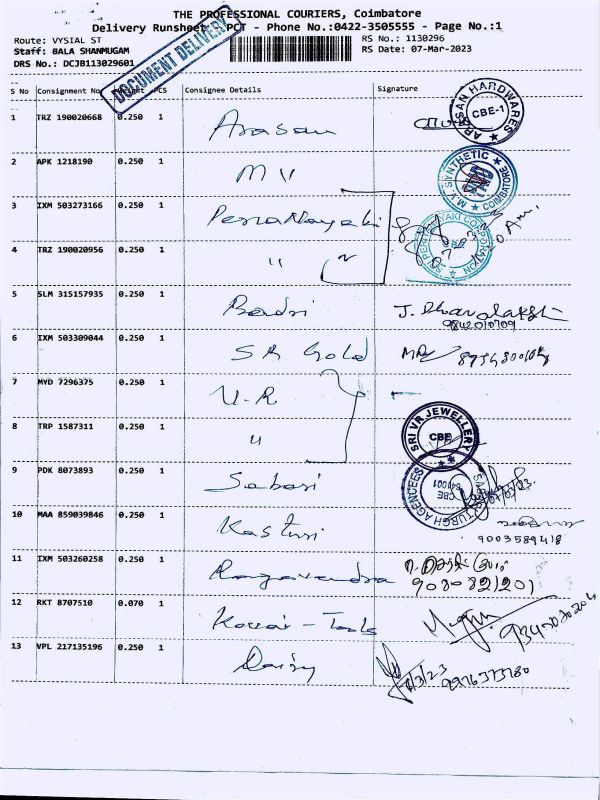 THE PROFESSIONAL COURIERS, Coimbatore
Delivery Runsheet PCT - Phone No.:0422-3505555 - Page No.:1
Route: VYSIAL ST
RS No.: 1130296
Staff: BALA SHANMUGAM
RS Date: 07-Mar-2023
DRS No.: DCJB113029601
DOCUMENT DELIVERY
S No Consignment No PCS Consignee Details Signature
1 TRZ 190020668 0.250 1 Arasan
ARASAN HARDWARES CBE-1
2 APK 1218190 0.250 1 M V
M.V. SYNTHETIC COIMBATORE
3 IXM 503273166 0.250 1
4 TRZ 190020956 0.250 1 "
5 SLM 315157935 0.250 1 Badri
9842010709
6 IXM 503309044 0.250 1 SR Gold
7 MYD 7296375 0.250 1 V.R
8 TRP 1587311 0.250 1 "
SRI VR JEWELLERY CBE
9 PDK 8073893 0.250 1 Sabari
CBE 641001
10 MAA 859039846 0.250 1 Kasturi
9003589418
11 IXM 503260258 0.250 1 Ragavendra
12 RKT 8707510 0.070 1 Kovai - Tools
13 VPL 217135196 0.250 1 Daisy
9976373780